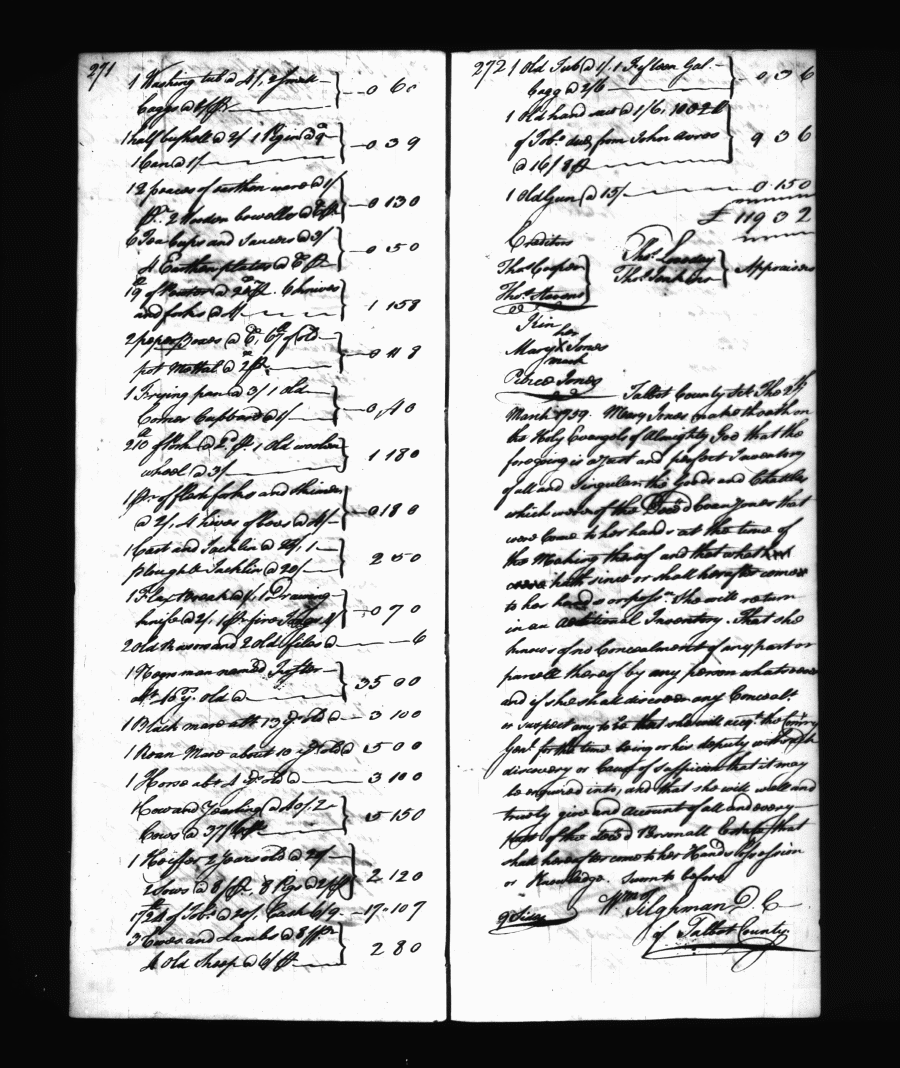 271
1 Washing tub @ 4/, 2 small
Caggs @ 1/ pr — 0 6 0
1 half bushell @ 2/ 1 Pigin @ 9d
1 Can @ 1/ — 0 3 9
12 peaces of earthen ware @ 1/
2 Wooden bowlls @ — 0 13 0
6 Tea Cups and Saucers @ 3/
4 Earthen plates @ 6 p — 0 5 0
19 of Pewter @ 6 knives
and forks @ 4/ — 1 15 8
2 peper Boxes @ 6, 6 of old
pot Mettal @ 2 p — 0 4 8
1 Frying pan @ 3/ 1 old
Corner Cupbord @ 1/ — 0 4 0
210 of Pork @ 2d p, 1 old woolen
wheel @ 3/ — 1 18 0
1 pr. of flesh forks and skimer
@ 2/, 4 hives of bees @ 4/ — 0 18 0
1 Cart and Tacklin @ 25/, 1
plough & Tacklin @ 20/ — 2 5 0
1 Flax break @ 4/, 1 Drawing
knife @ 2/, 1 pr fire Tongs 1/ — 0 7 0
2 old Rasors and 2 old files @ — 6
1 Negro man named
abt 16 y. old @ — 35 0 0
1 Black mare abt 13 y. old @ — 3 10 0
1 Roan Mare about 10 y. old @ 5 0 0
1 Horse abt 4 y. old @ — 3 10 0
1 Cow and Yearling @ 40/, 2
Cows @ 37/6 p — 5 15 0
1 Heiffer 2 years old @ 20/
2 Sows @ 8/ p, 8 Pigs @ — 2 12 0
1724 of Tobo. @ 20/, Cash 6/9 — 17 10 7
3 Ewes and Lambs @ 8/ pr
4 old Sheep @ 6/ p — 2 8 0
272 1 Old Tub @ 1/, 1 Fifteen Gal
Cagg @ 2/6 — 0 3 6
1 old hand saw @ 1/6,
of Tobo. due from John Acres
@ 16/8 p — 9 3 6
1 Old Gun @ 15/ — 0 15 0
£ 119 3 2
Creditors
Thos. Cooper
Thos. Stevens
Thos. Loveday
Thos. Appraisers
Kin
her
Mary X Jones
mark
Peirce Jones
Talbot County Sct. The
March 1739. Mary Jones make the oath on
the Holy Evangels of Almighty God that the
foregoing is a Just and perfect Inventory
of all and Singular the Goods and Chattles
which were of the Deced Evan Jones that
were Come to her hands at the time of
the Making thereof and that what
hath since or shall hereafter come
to her hands or possn. She will return
in an Additional Inventory. That she
knows of no Concealment of any part or
parcell thereof by any person whatsoever
and if she shall discover any Concealt.
or suspect any to be that she will acqt. the Comry
Genl. for the time being or his deputy with such
discovery or Cause of suspicion that it may
be enquired into, and that she will well and
truely give and Account of all and every
Part of the Deced Personall Estate that
shall hereafter come to her Hands Possession
or Knowledge. Sworn to before
Wm. Tilghman D C
of Talbot County.